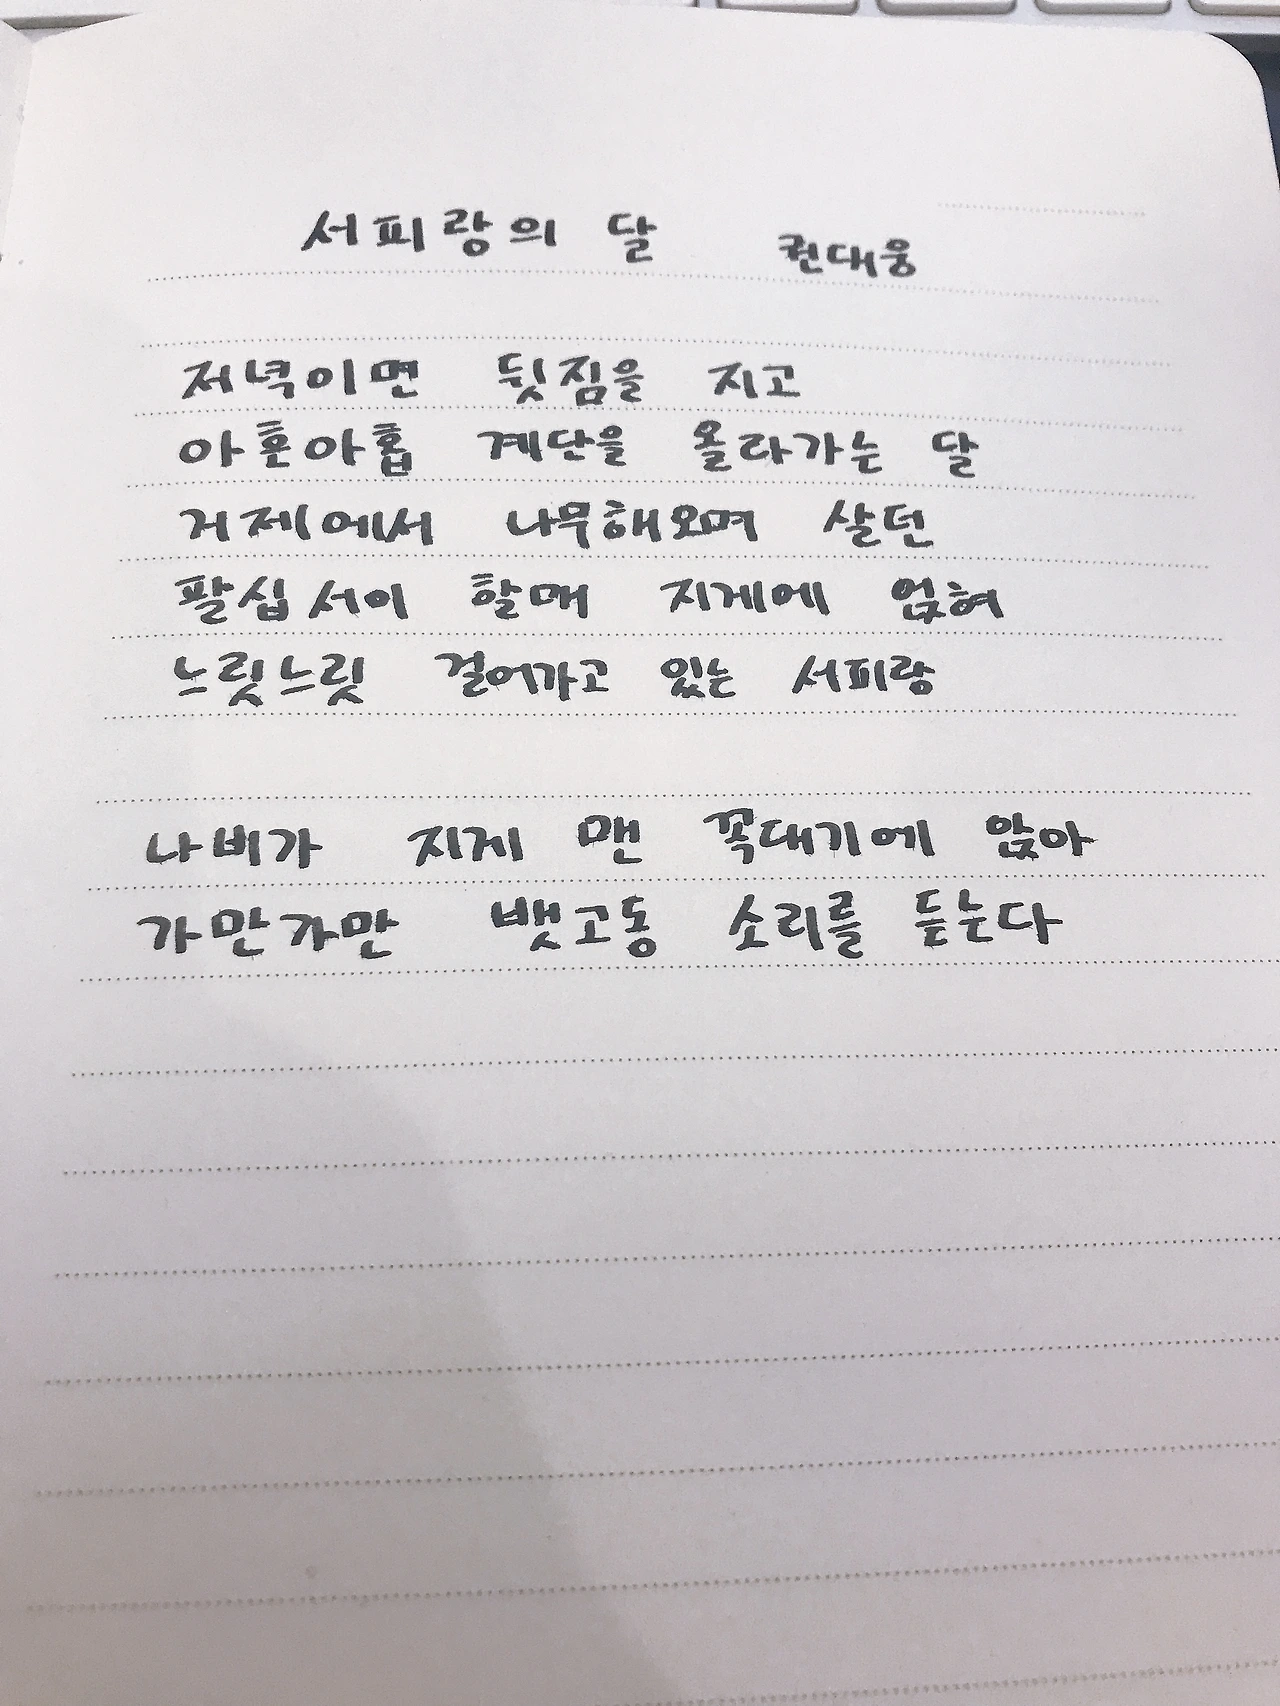 서피랑의 달 권대웅
저녁이면 뒷짐을 지고
아흔아홉 계단을 올라가는 달
거제에서 나무해오며 살던
팔십서이 할매 지게에 얹혀
느릿느릿 걸어가고 있는 서피랑
나비가 지게 맨 꼭대기에 앉아
가만가만 뱃고동 소리를 듣는다